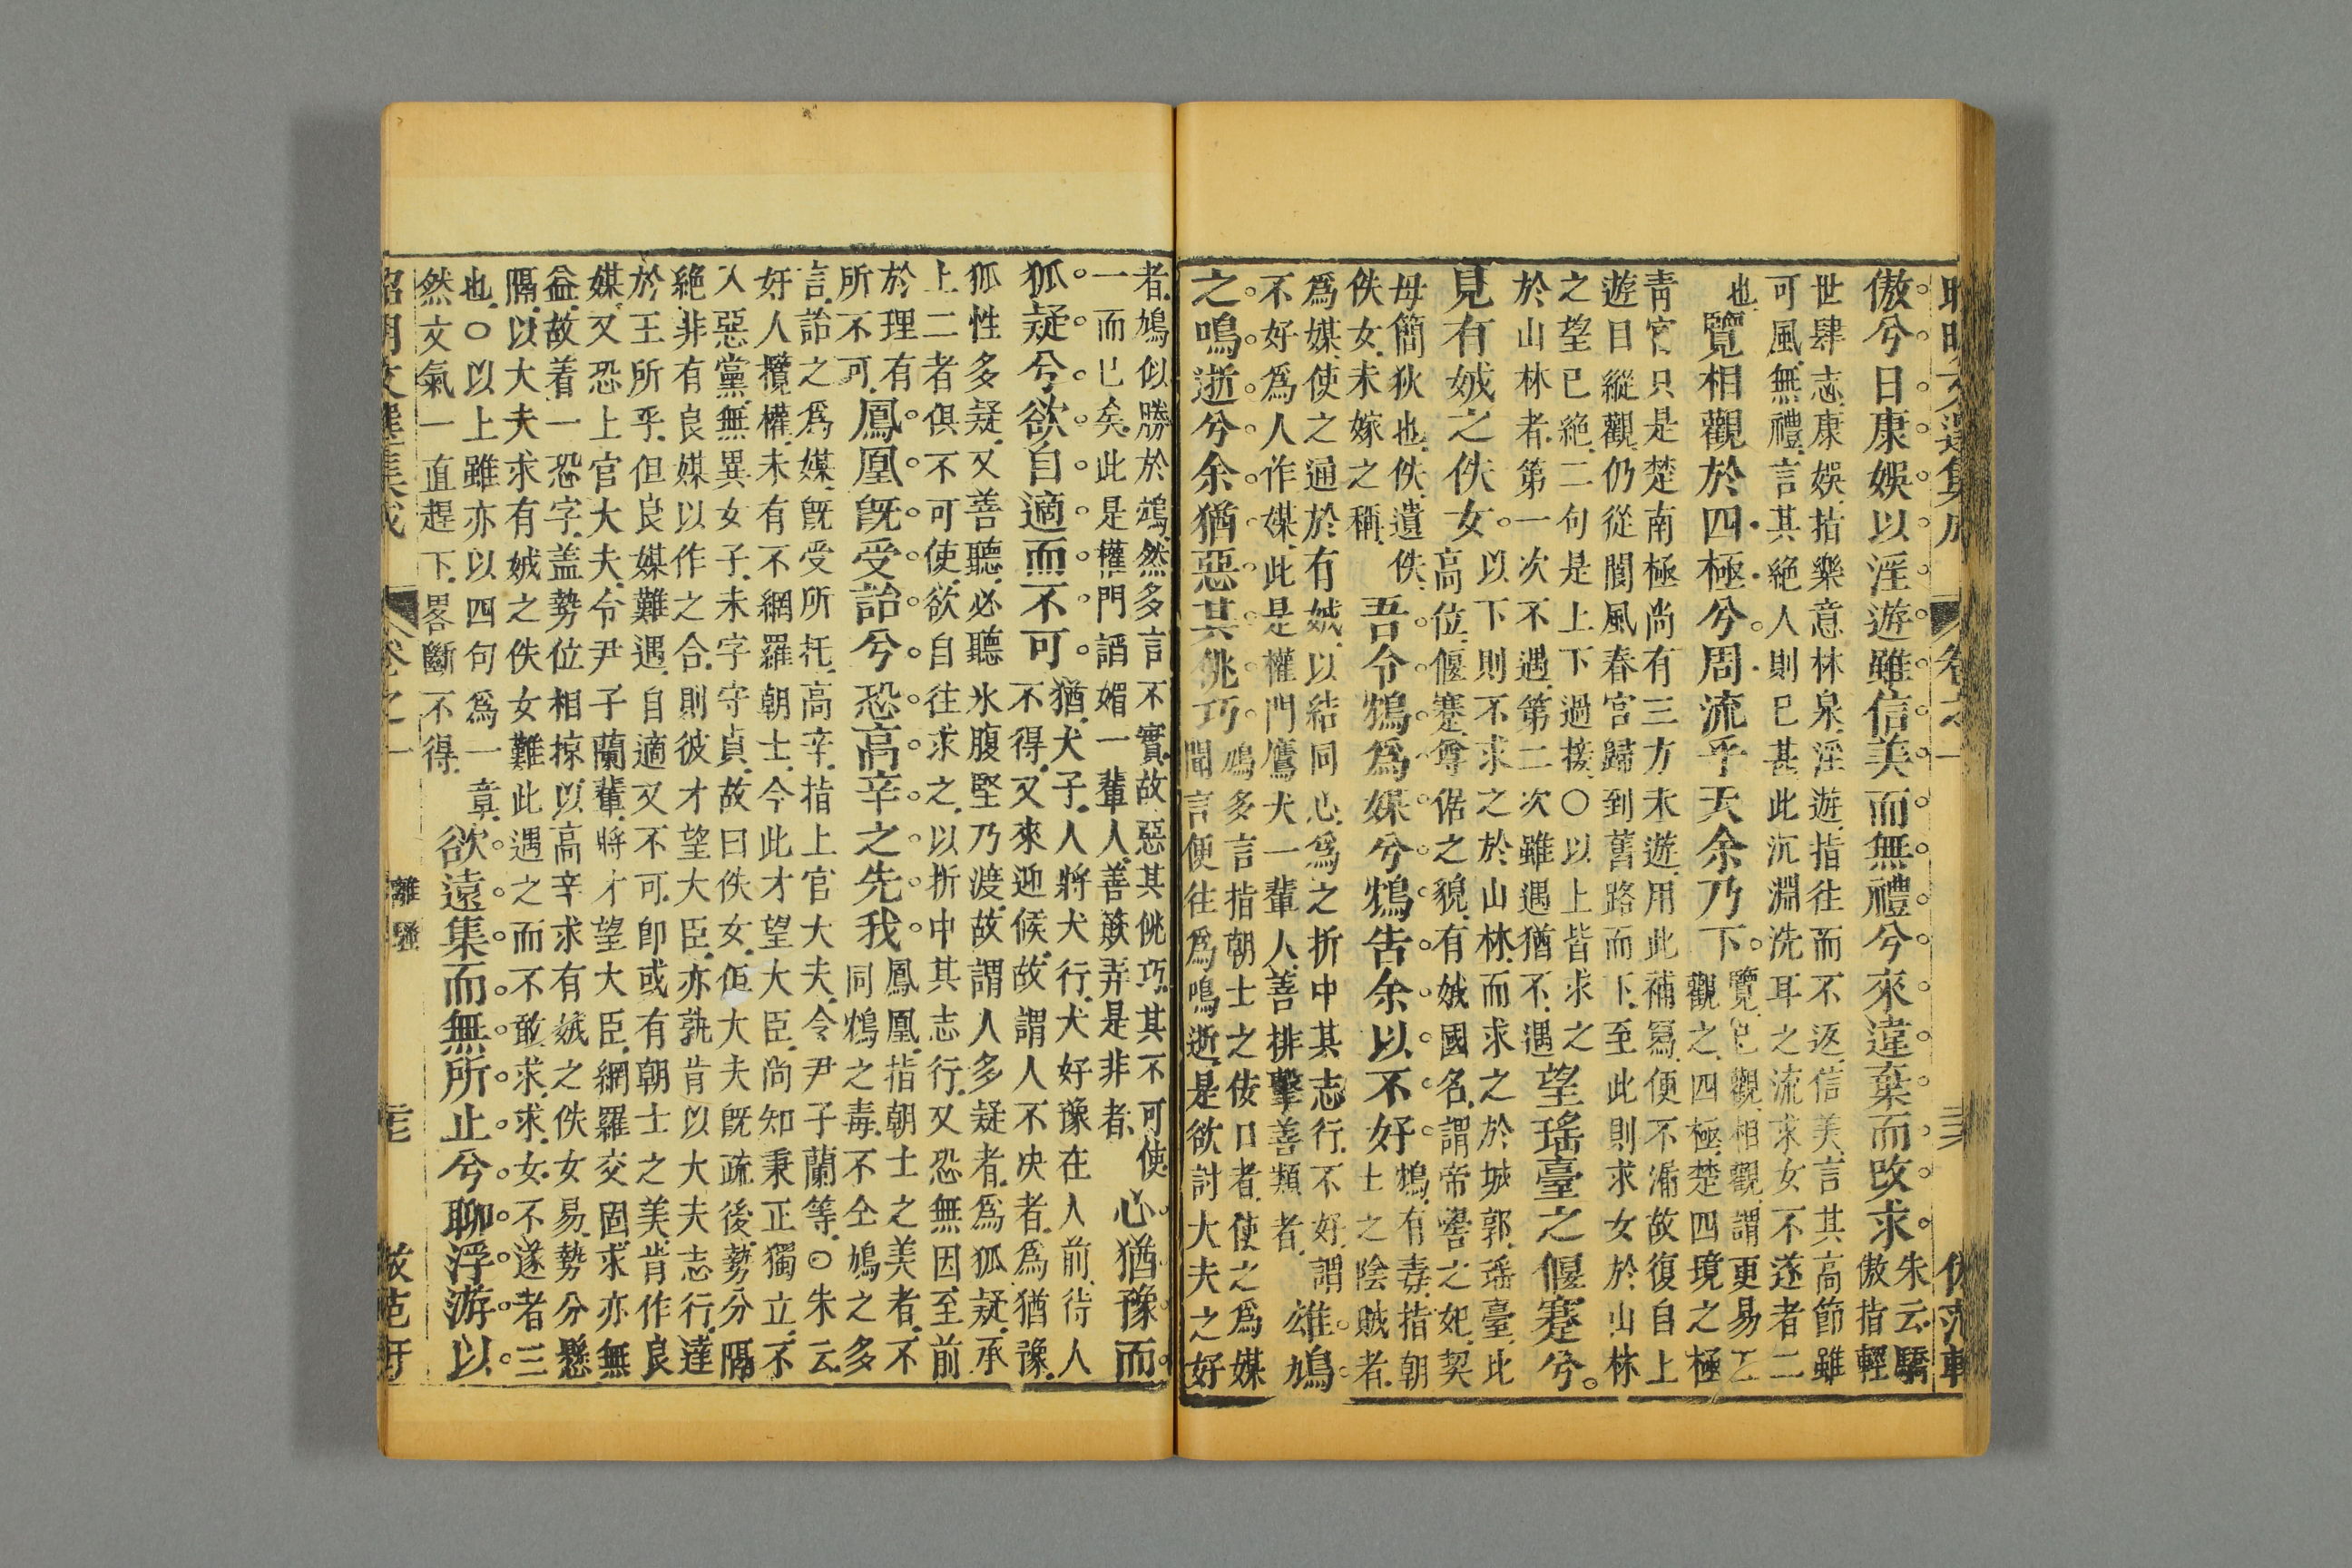 傲兮日康娛以淫遊雖信美而無禮兮來違棄而改求朱云驕傲指輕
世肆志康娛指樂意林泉淫遊指往而不返信美言其高節雖
可風無禮言其絕人則已甚此沉淵洗耳之流求女不遂者二
也覽相觀於四極兮周流乎天余乃下覽已觀相觀謂更易
觀之四極楚四境之極
青宮只是楚南極尚有三方未遊用此補寫便不漏故復自上
遊目縱觀仍從閬風春宮歸到舊路而下至此則求女於山林
之望已絕二句是上下過接〇以上皆求之
於山林者第一次不遇第二次雖遇猶不遇望瑤臺之偃蹇兮
見有娀之佚女以下則不求之於山林而求之於城郭瑤臺此
高位偃蹇尊偌之貌有娀國名謂帝嚳之妃契
母簡狄也佚遺佚
佚女未嫁之稱吾令鴆爲媒兮鴆告余以不好鴆有毒指朝
士之陰賊者
爲媒使之通於有娀以結同心爲之折中其志行不好謂
不好爲人作媒此是權門鷹犬一輩人善排擊善類者雄鳩
之鳴逝兮余猶惡其佻巧鳩多言指朝士之佞口者使之爲媒
聞言便往爲鳴逝是欲討大夫之好
者鳩似勝於鴆然多言不實故惡其佻巧其不可使
一而已矣此是權門謟媚一輩人善簸弄是非者心猶豫而
狐疑兮欲自適而不可猶犬子人將犬行犬好豫在人前待人
不得又來迎候故謂人不決者爲猶豫
狐性多疑又善聽必聽氷腹堅乃渡故謂人多疑者爲狐疑承
上二者俱不可使欲自往求之以折中其志行又恐無因至前
於理有
所不可鳳凰旣受詒兮恐高辛之先我鳳凰指朝士之美者不
同鴆之毒不仝鳩之多
言詒之爲媒旣受所托高辛指上官大夫令尹子蘭等〇朱云
好人攬權未有不網羅朝士今此才望大臣尚知秉正獨立不
入惡黨無異女子未字守貞故曰佚女但大夫旣疏後勢分隔
絕非有良媒以作之合則彼才望大臣亦孰肯以大夫志行達
於王所乎但良媒難遇自適又不可卽或有朝士之美肯作良
媒又恐上官大夫令尹子子蘭輩將才望大臣網羅交固求亦無
益故着一恐字盖勢位相掠以高辛求有娀之佚女易勢分懸
隔以大夫求有娀之佚女難此遇之而不敢求求女不遂者三
也〇以上雖亦以四句爲一章
然文氣一直趕下畧斷不得欲遠集而無所止兮聊浮游以
離騷